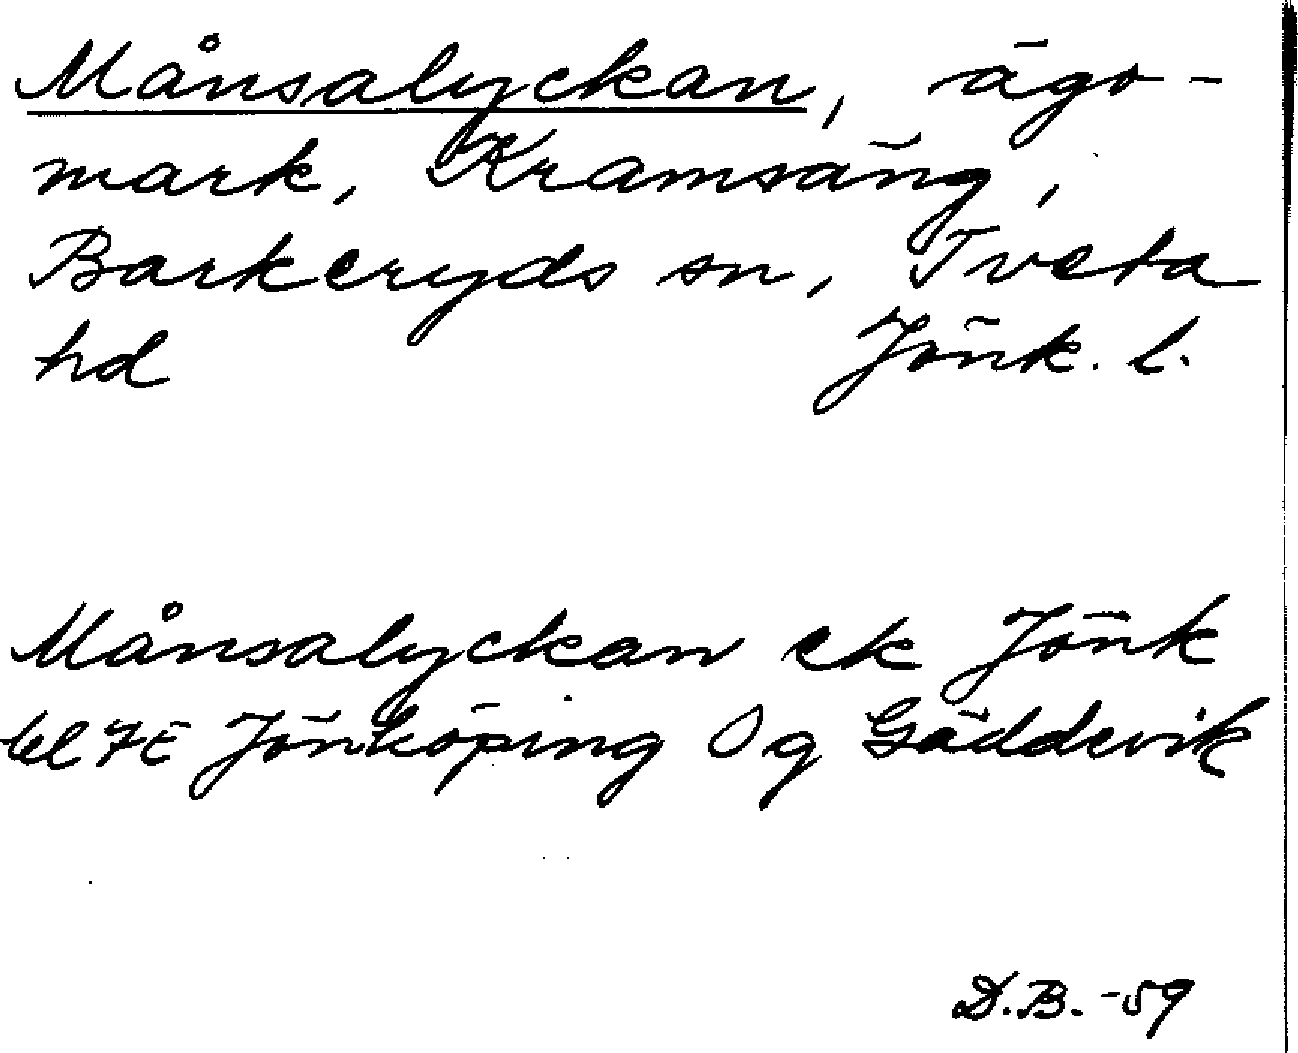 Månsalyckan, ägo-
mark, Kramsäng,
Barkeryds sn, Tveta
hd Jönk. l.
Månsalyckan ek Jönk
bl 7E Jönköping Og Gäddevik
D.B. -59